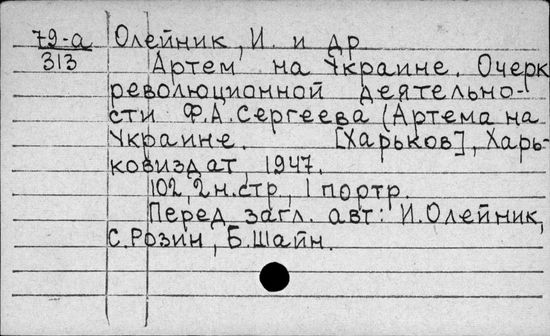 79-а Олейник, И. и др
313 Артем на Украине. Очерк
революционной деятельно-
сти Ф.А.Сергеева (Артема на
Украине. [Харьков], Харь-
ковиздат, 1947.
102, 2 н.стр, 1 портр.
Перед загл. авт: И.Олейник,
С.Розин, Б.Шайн.